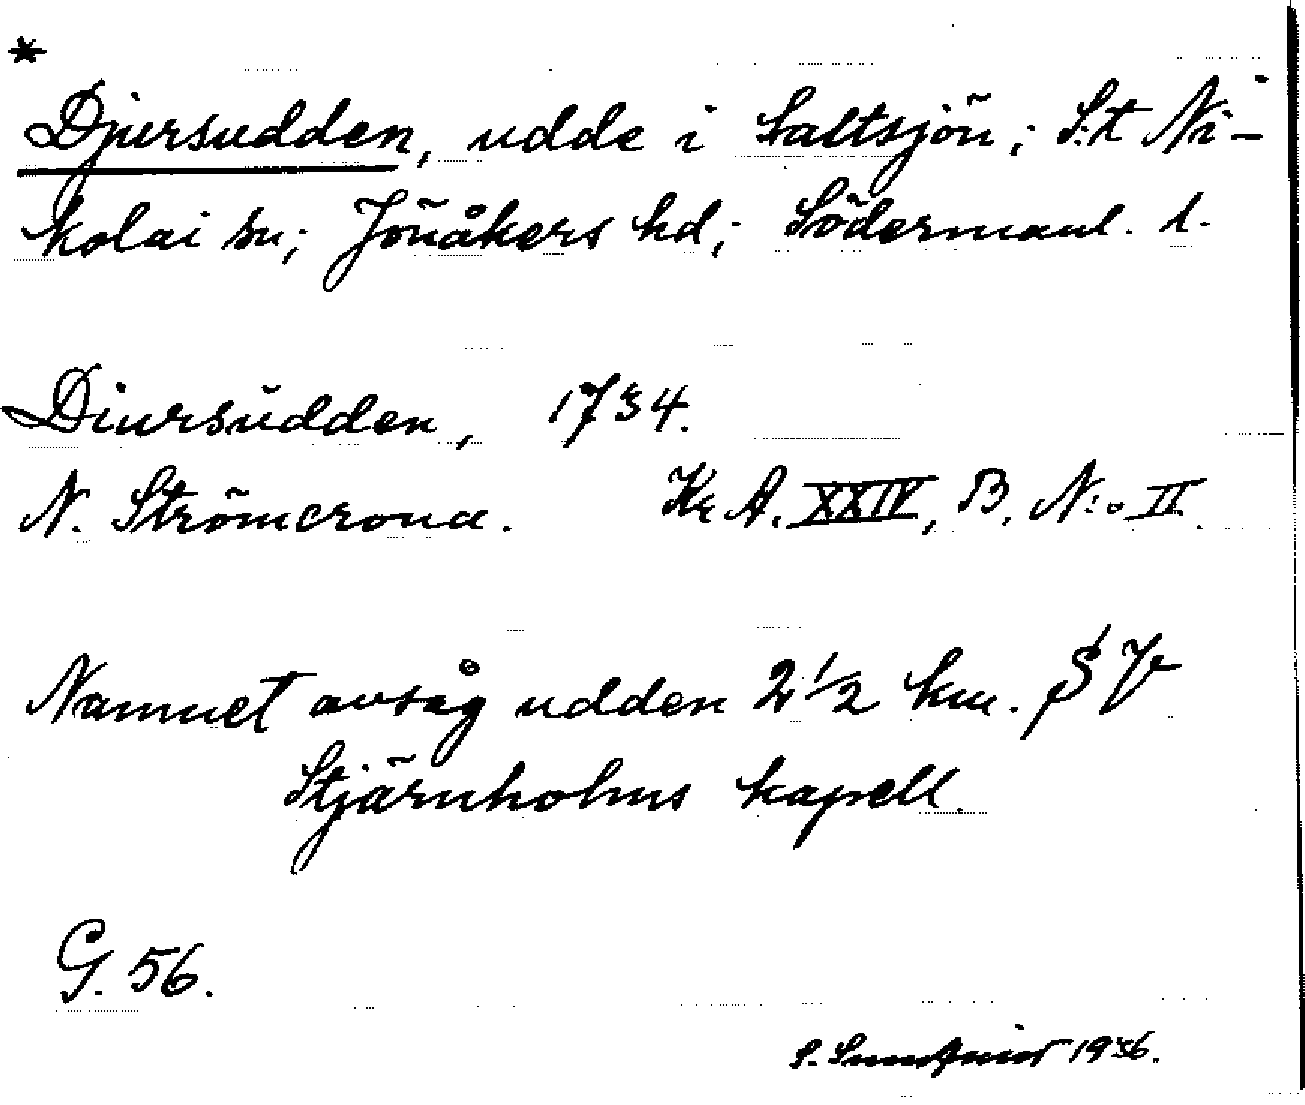 *
Djursudden, udde i Saltsjön; S:t Ni-
kolai sn; Jönåkers hd; Södermanl. l.
Diursudden, 1734.
N. Strömcrona. Kr A. XXIV, B. N:o II.
Namnet avsåg udden 2 1/2 km. SV
Stjärnholms kapell.
G. 56.
S. 1936.